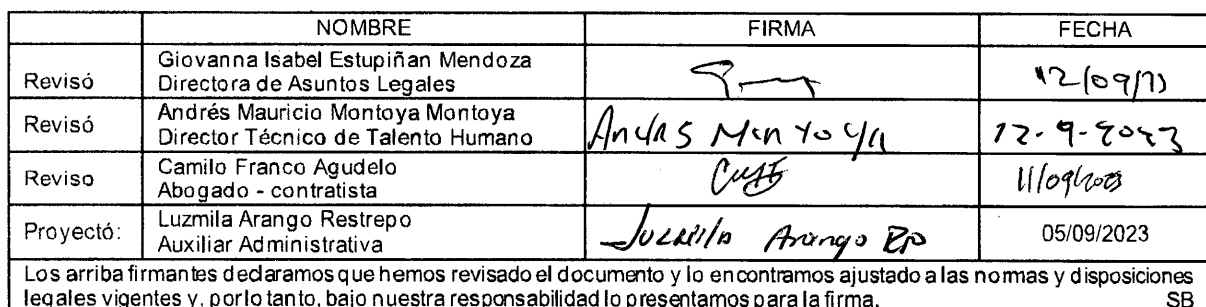 NOMBRE FIRMA FECHA
Revisó Giovanna Isabel Estupiñan Mendoza
Directora de Asuntos Legales 12/09/23
Revisó Andrés Mauricio Montoya Montoya
Director Técnico de Talento Humano Andrés Montoya 12-9-2023
Reviso Camilo Franco Agudelo
Abogado - contratista 11/09/2023
Proyectó: Luzmila Arango Restrepo
Auxiliar Administrativa Luzmila Arango 05/09/2023
Los arriba firmantes declaramos que hemos revisado el documento y lo encontramos ajustado a las normas y disposiciones
legales vigentes y, por lo tanto, bajo nuestra responsabilidad lo presentamos para la firma. SB